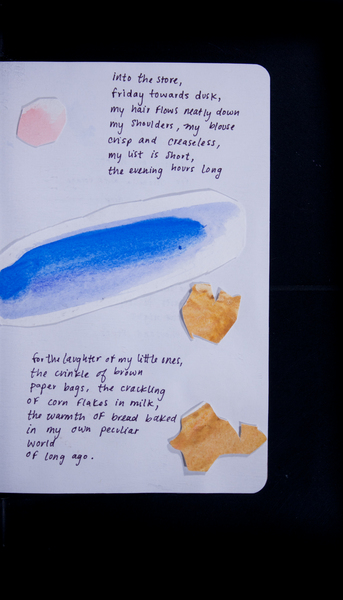 into the store,
friday towards dusk,
my hair flows neatly down
my shoulders, my blouse
crisp and creaseless,
my list is short,
the evening hours long
for the laughter of my little ones,
the crinkle of brown
paper bags, the crackling
of corn flakes in milk,
the warmth of bread baked
in my own peculiar
world
of long ago.